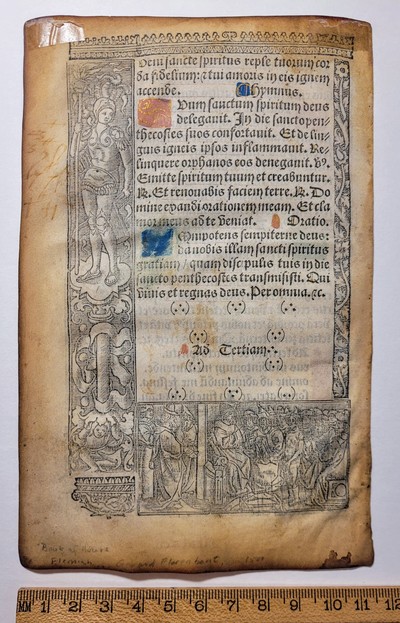 Veni sancte spiritus reple tuorum cor
da fidelium: et tui amoris in eis ignem
accende. Hymnus.
Dum sanctum spiritum deus
delegauit. In die sancto pen-
thecostes suos confortauit. Et de lin-
guis igneis ipsos inflammauit. Re-
linquere orphanos eos denegauit. v̄.
Emitte spiritum tuum et creabuntur.
R. Et renouabis faciem terre. R. Do
mine exaudi orationem meam. Et cla
mor meus ad te veniat. Oratio.
Omnipotens sempiterne deus:
da nobis illam sancti spiritus
gratiam / quam discipulis tuis in die
sancto penthecostes transmisisti. Qui
viuis et regnas deus. Per omnia. ꝛc.
Ad Tertiam
Book of Hours
Flemish
MM 1 2 3 4 5 6 7 8 9 10 11 12